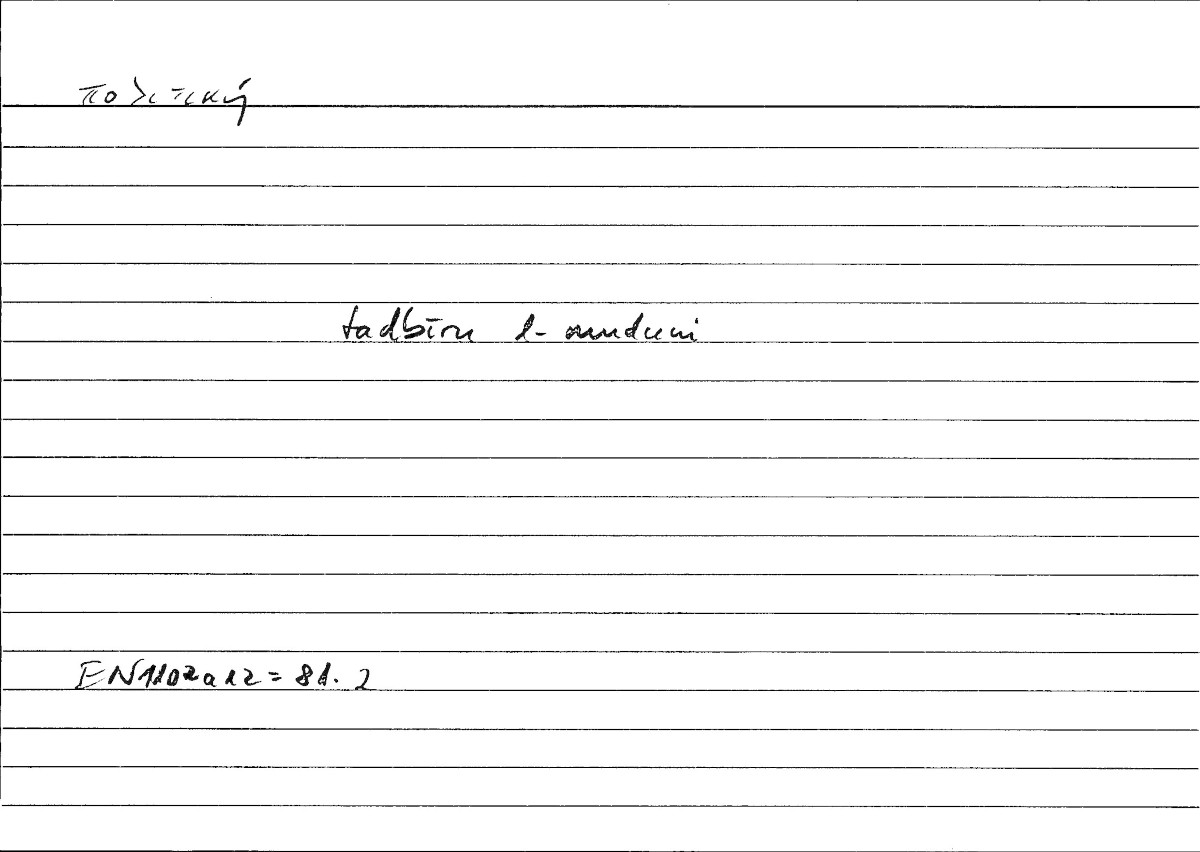 πολιτική
tadbīru l-muduni
EN1102a12 = 81.2